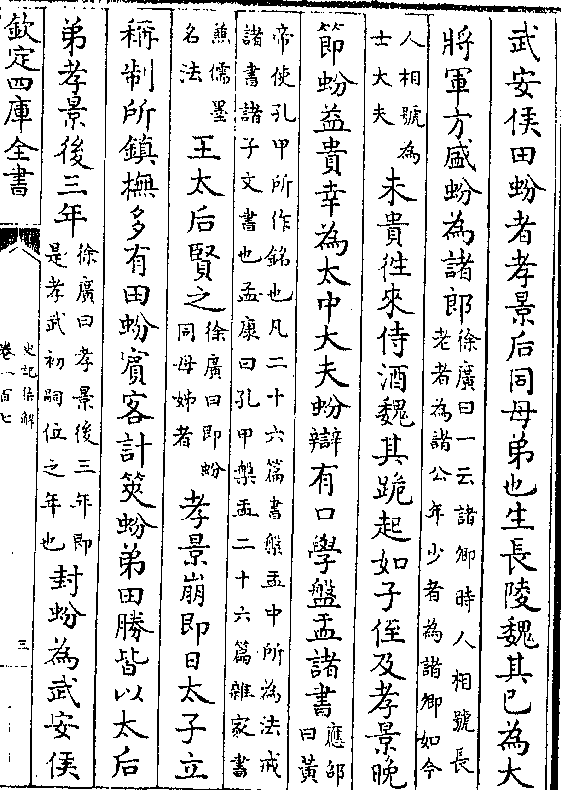 武安侯田蚡者孝景后同母弟也生長陵魏其已為大
將軍方盛蚡為諸郎
徐廣曰一云諸卿時人相號長
老者為諸公年少者為諸卿如今
人相號為
士大夫
未貴往來侍酒魏其跪起如子侄及孝景晚
節蚡益貴幸為太中大夫蚡辯有口學盤盂諸書
應邵
曰黃
帝使孔甲所作銘也凡二十六篇書槃盂中所為法戒
諸書諸子文書也孟康曰孔甲槃盂二十六篇雜家書
兼儒墨
名法
王太后賢之
徐廣曰即蚡
同母姊者
孝景崩即日太子立
稱制所鎮撫多有田蚡賓客計筴蚡弟田勝皆以太后
弟孝景後三年
徐廣曰孝景後三年即
是孝武初嗣位之年也
封蚡為武安侯
欽定四庫全書
史記集解
卷一百七
三